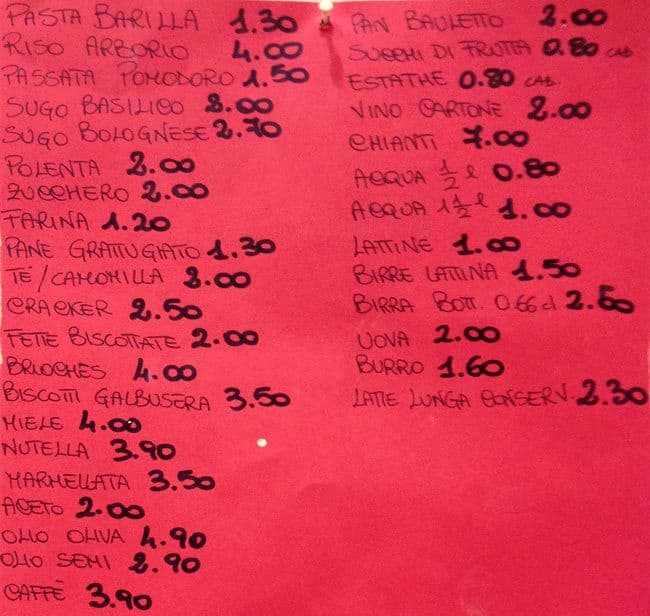 PASTA BARILLA 1.30
RISO ARBORIO 4.00
PASSATA POMODORO 1.50
SUGO BASILICO 2.00
SUGO BOLOGNESE 2.70
POLENTA 2.00
ZUCCHERO 2.00
FARINA 1.20
PANE GRATTUGIATO 1.30
TÈ/CAMOMILLA 2.00
CRACKER 2.50
FETTE BISCOTTATE 2.00
BRIOCHES 4.00
BISCOTTI GALBUSERA 3.50
MIELE 4.00
NUTELLA 3.90
MARMELLATA 3.50
ACETO 2.00
OLIO OLIVA 4.90
OLIO SEMI 2.90
CAFFÈ 3.90
PAN BAULETTO 2.00
SUCCHI DI FRUTTA 0.80 CAD
ESTATHE 0.80 CAD
VINO CARTONE 2.00
CHIANTI 7.00
ACQUA ½ l 0.80
ACQUA 1½ l 1.00
LATTINE 1.00
BIRRE LATTINA 1.50
BIRRA BOTT. 0.66 cl 2.60
UOVA 2.00
BURRO 1.60
LATTE LUNGA CONSERV. 2.30